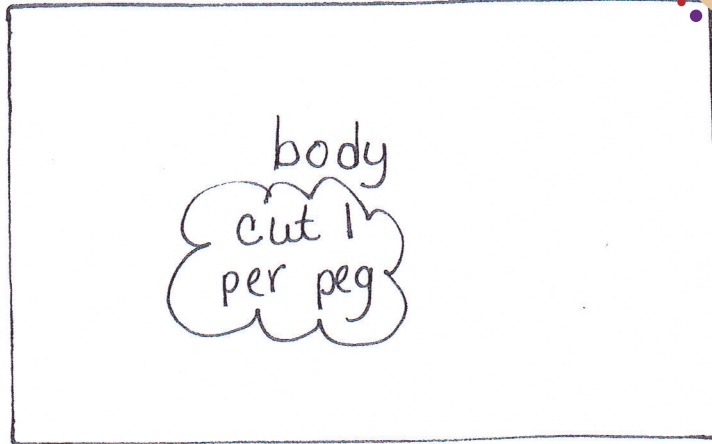 body
cut 1
per peg